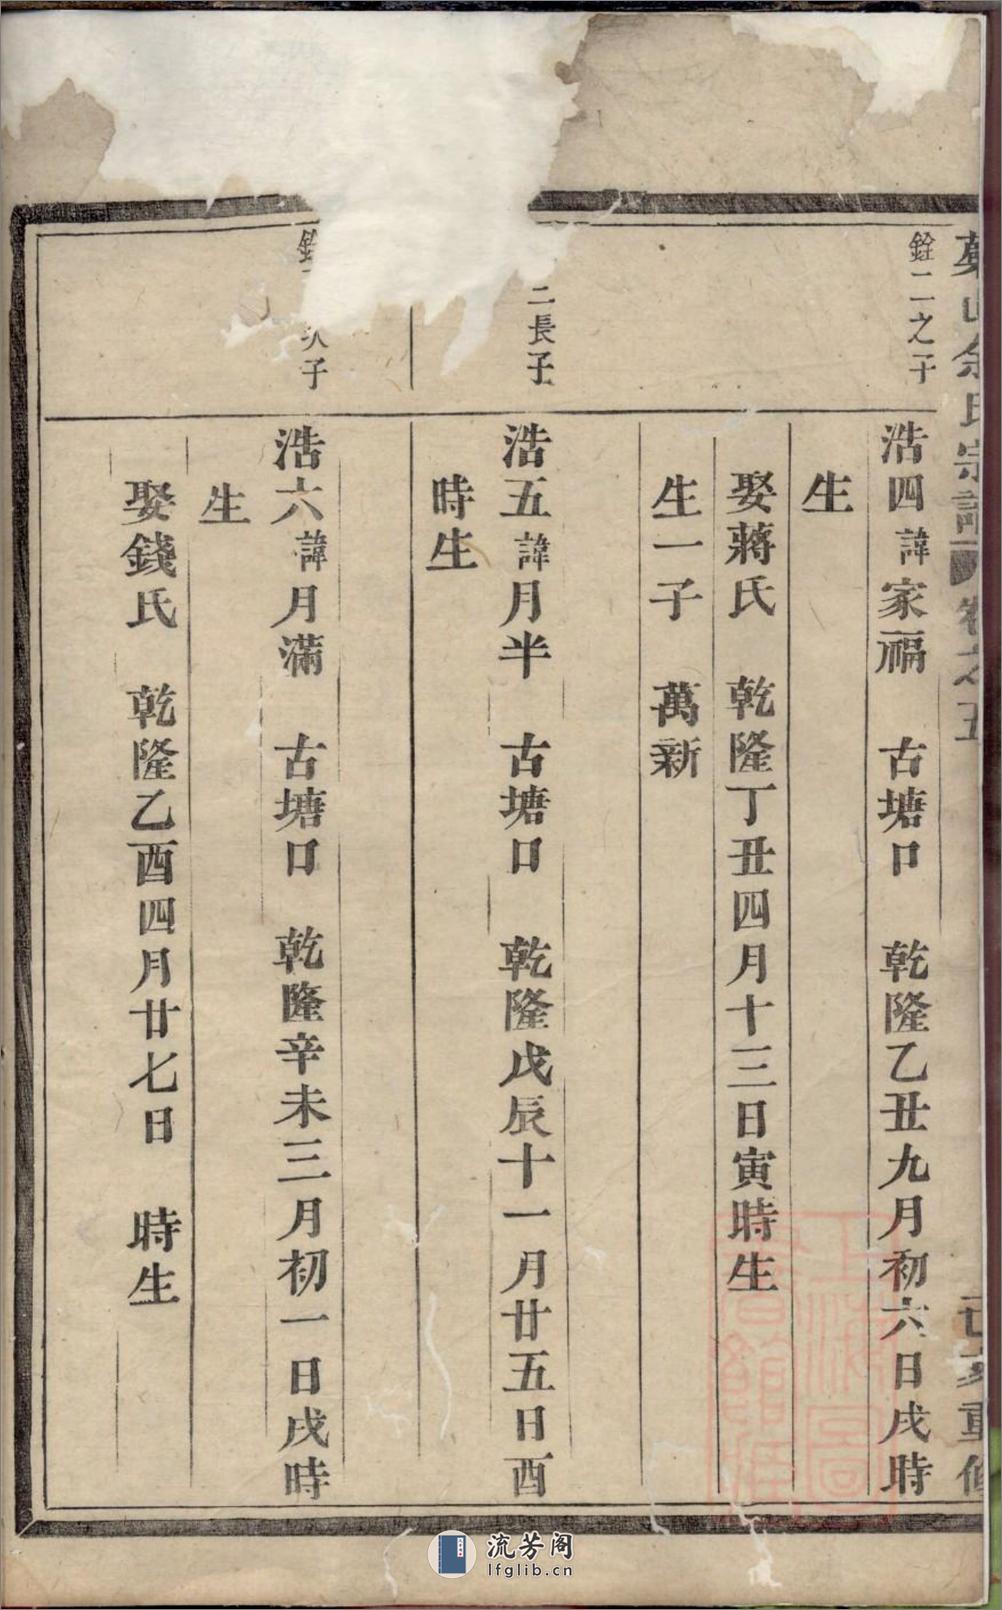 余氏宗譜 卷之五 重修
銓二之子
浩四諱家福 古塘口 乾隆乙丑九月初六日戌時
生
娶蔣氏 乾隆丁丑四月十三日寅時生
生一子 萬新
二長子
浩五諱月半 古塘口 乾隆戊辰十一月廿五日酉
時生
銓 次子
浩六諱月滿 古塘口 乾隆辛未三月初一日戌時
生
娶錢氏 乾隆乙酉四月廿七日 時生
上海圖書館藏
流芳阁
lfglib.cn